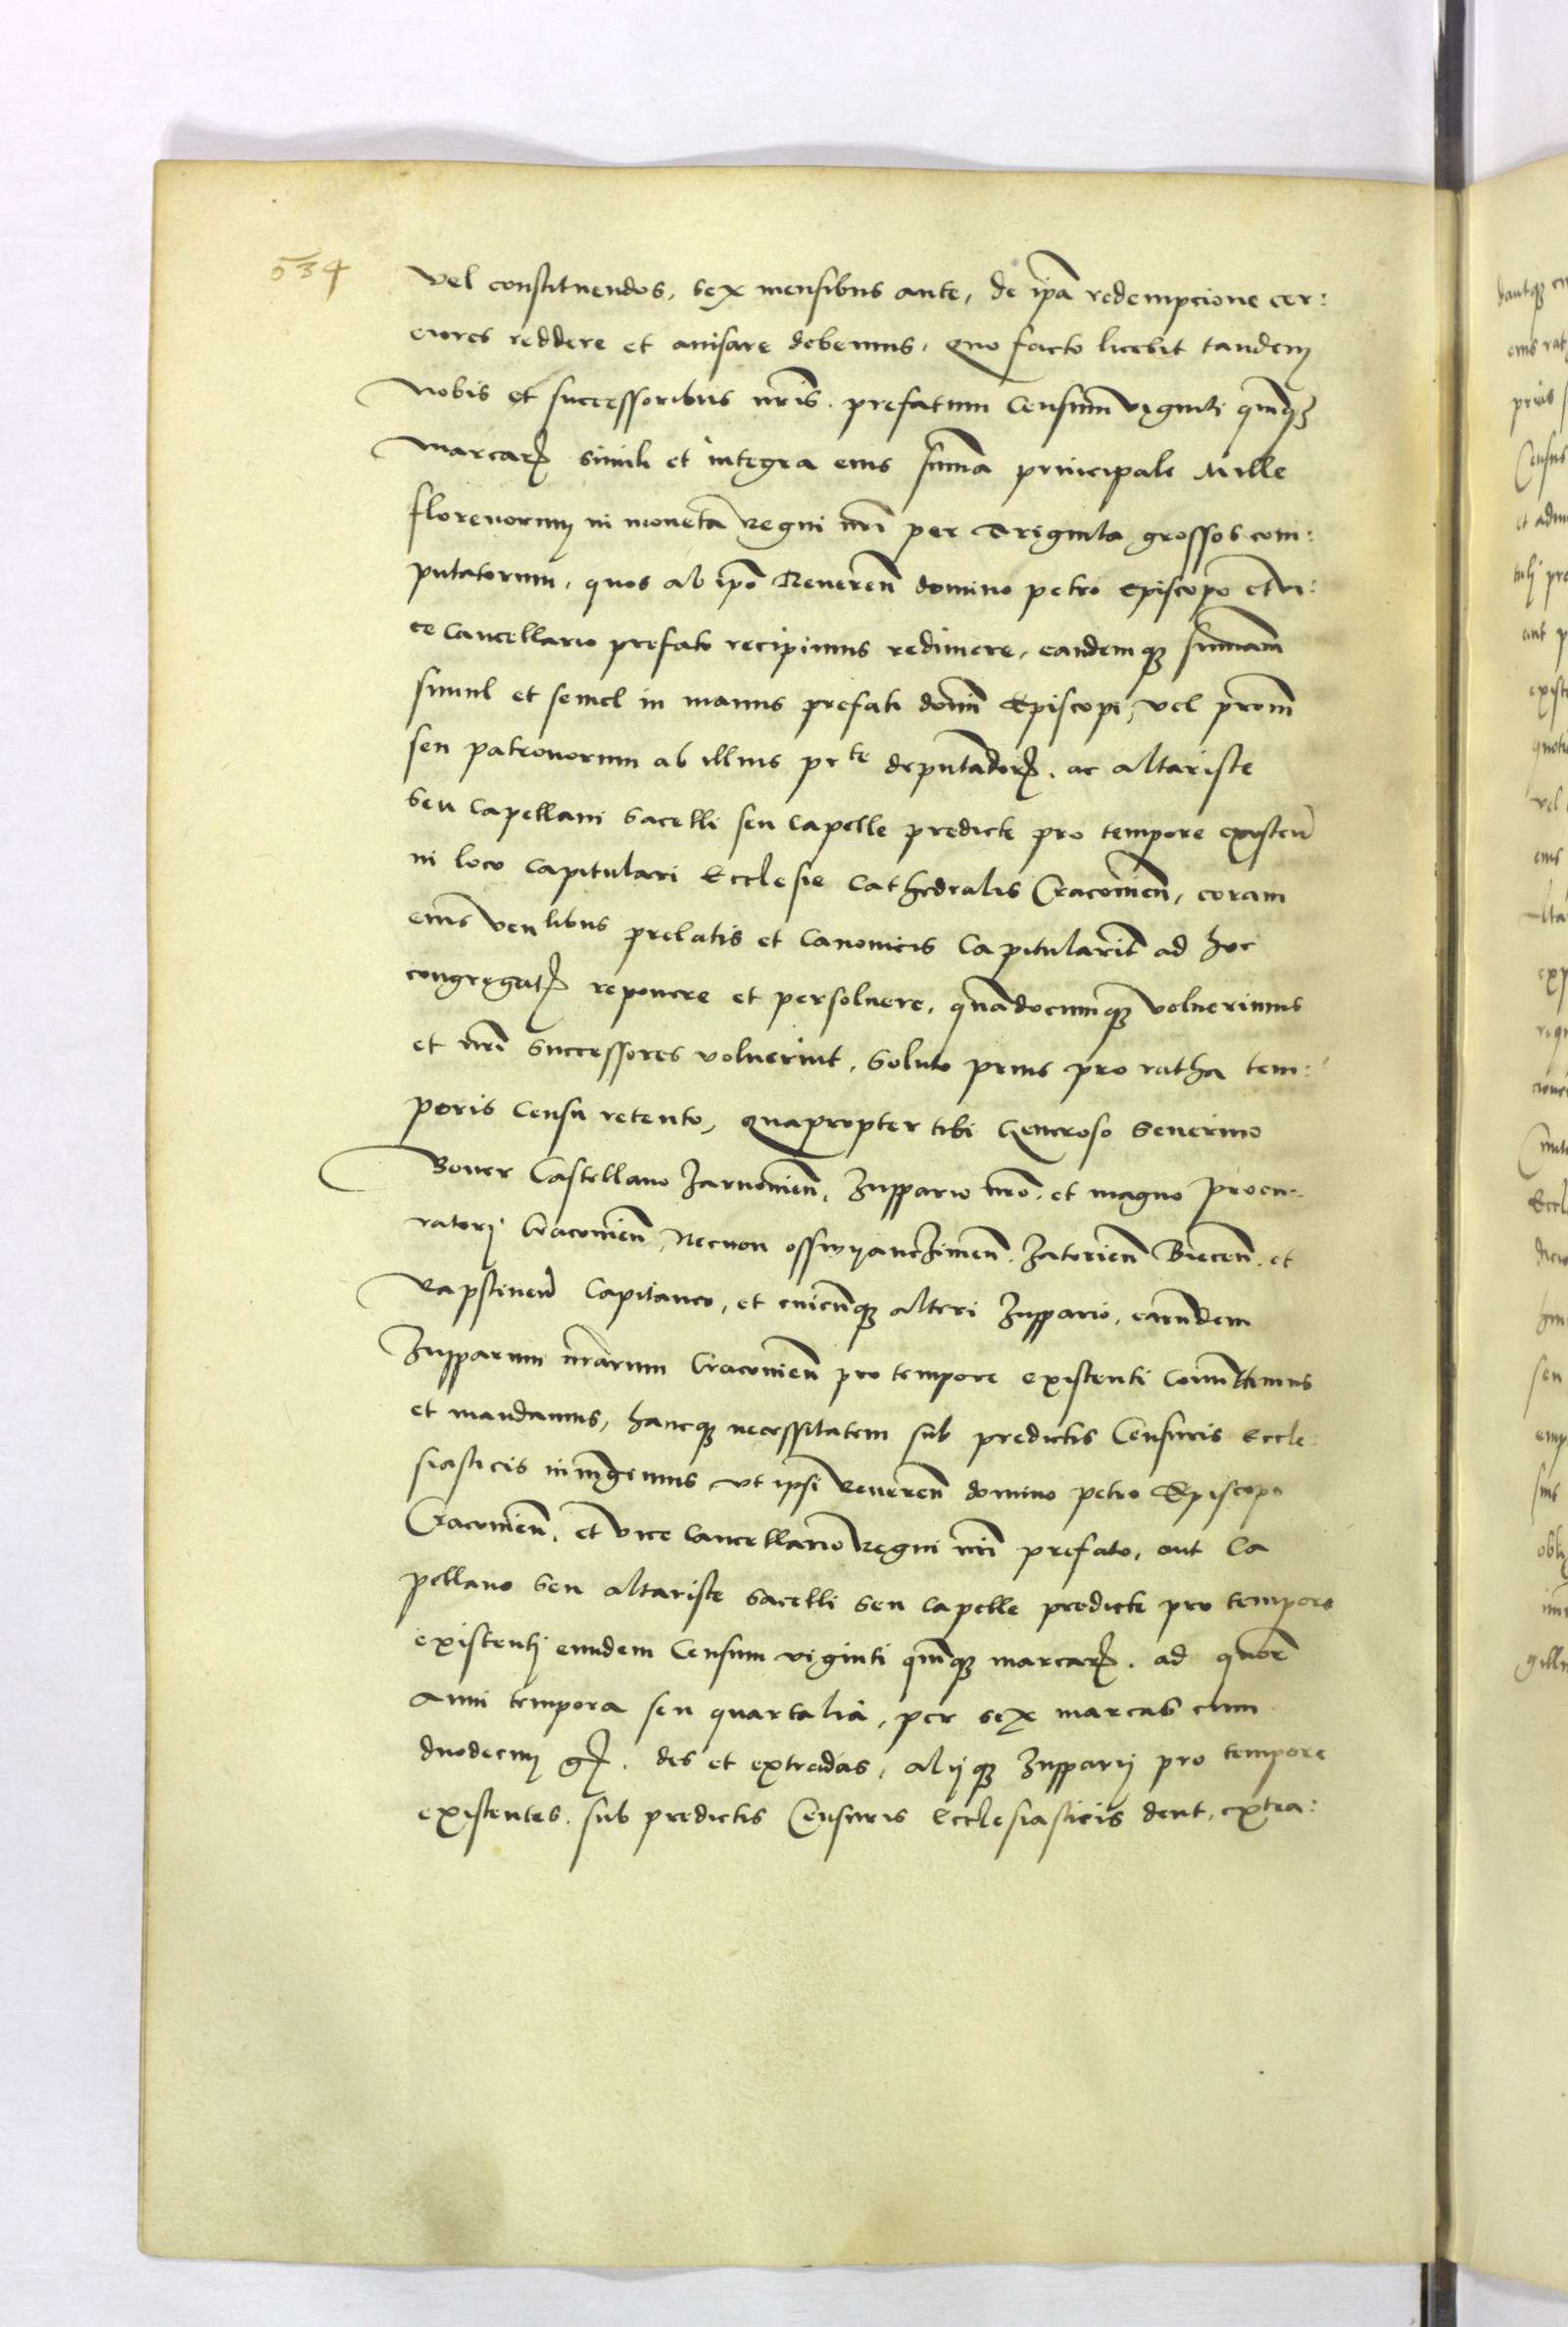 534
vel constituendos, sex mensibus ante, de ip̄a redempcione cer:
ciores reddere et avisare debemus, Quo facto licebit tandem
Nobis et successoribus nr̄is. prefatum Censum viginti quinq3
Marcarꝝ simili et integra eius sum̄a principale Mille
florenorum in moneta Regni nr̄i per Triginta grossos com:
putatorum, quos ab ip̄o Reueren̄ domino petro Episcopo et vi:
ce Cancellario prefato recipimus redimere, eandemq3 sum̄am
simul et semel in manus prefati domini Episcopi, vel
seu patronorum ab illius pte deputādorꝝ. ac altariste
seu Capellani Sacelli seu Capelle predicte pro tempore existen̄
in loco Capitulari Ecclesie Cathedralis Cracovien̄, coram
eius Ven libus prelatis et Canonicis Capitularit̄ ad hoc
congregatꝭ reponere et persoluere, quādocumq3 voluerimus
et nr̄i Successores voluerint, Soluto prius pro ratha tem:
poris Censu retento, Quapropter tibi Generoso Seuerino
Boner Castellano Zarnovien̄, Zuppario nr̄o. et magno procu:
ratorj Cracovien̄, Necnon osswyanczimen̄. Zatorien̄ Biecen̄. et
Rapstinen̄ Capitaneo, et cuicūq3 alteri Zuppario, earūdem
Zupparum nr̄arum Cracovien̄ pro tempore existenti Com̄ittimus
et mandamus, hancq3 necessitatem sub predictis Censuris Eccle:
siasticis iniūgimus vt ipsi Reueren̄ domino petro Episcopo
Cracovien̄. et vice Cancellario Regni nr̄i prefato, aut Ca
pellano seu altariste Sacelli seu Capelle predicte pro tempore
existentj eundem Censum viginti quinq3 marcarꝝ. ad quor̄
anni tempora seu quartalia, per sex marcas cum
duodecim gꝝ. des et extradas, alijq3 Zupparij pro tempore
existentes. sub predictis Censuris Ecclesiasticis dent, extra: